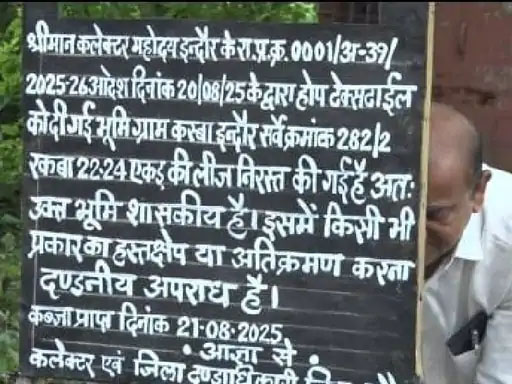 श्रीमान कलेक्टर महोदय इन्दौर के रा.प्र.क्र. 0001/अ-39/
2025-26 आदेश दिनांक 20/08/25 के द्वारा होप टेक्सटाईल
को दी गई भूमि ग्राम कस्बा इन्दौर सर्वे क्रमांक 282/2
रकबा 22.24 एकड़ की लीज निरस्त की गई है अतः
उक्त भूमि शासकीय है। इसमें किसी भी
प्रकार का हस्तक्षेप या अतिक्रमण करना
दण्डनीय अपराध है।
कब्जा प्राप्त दिनांक 21.08.2025
• आज्ञा से •
कलेक्टर एवं जिला दण्डाधिकारी